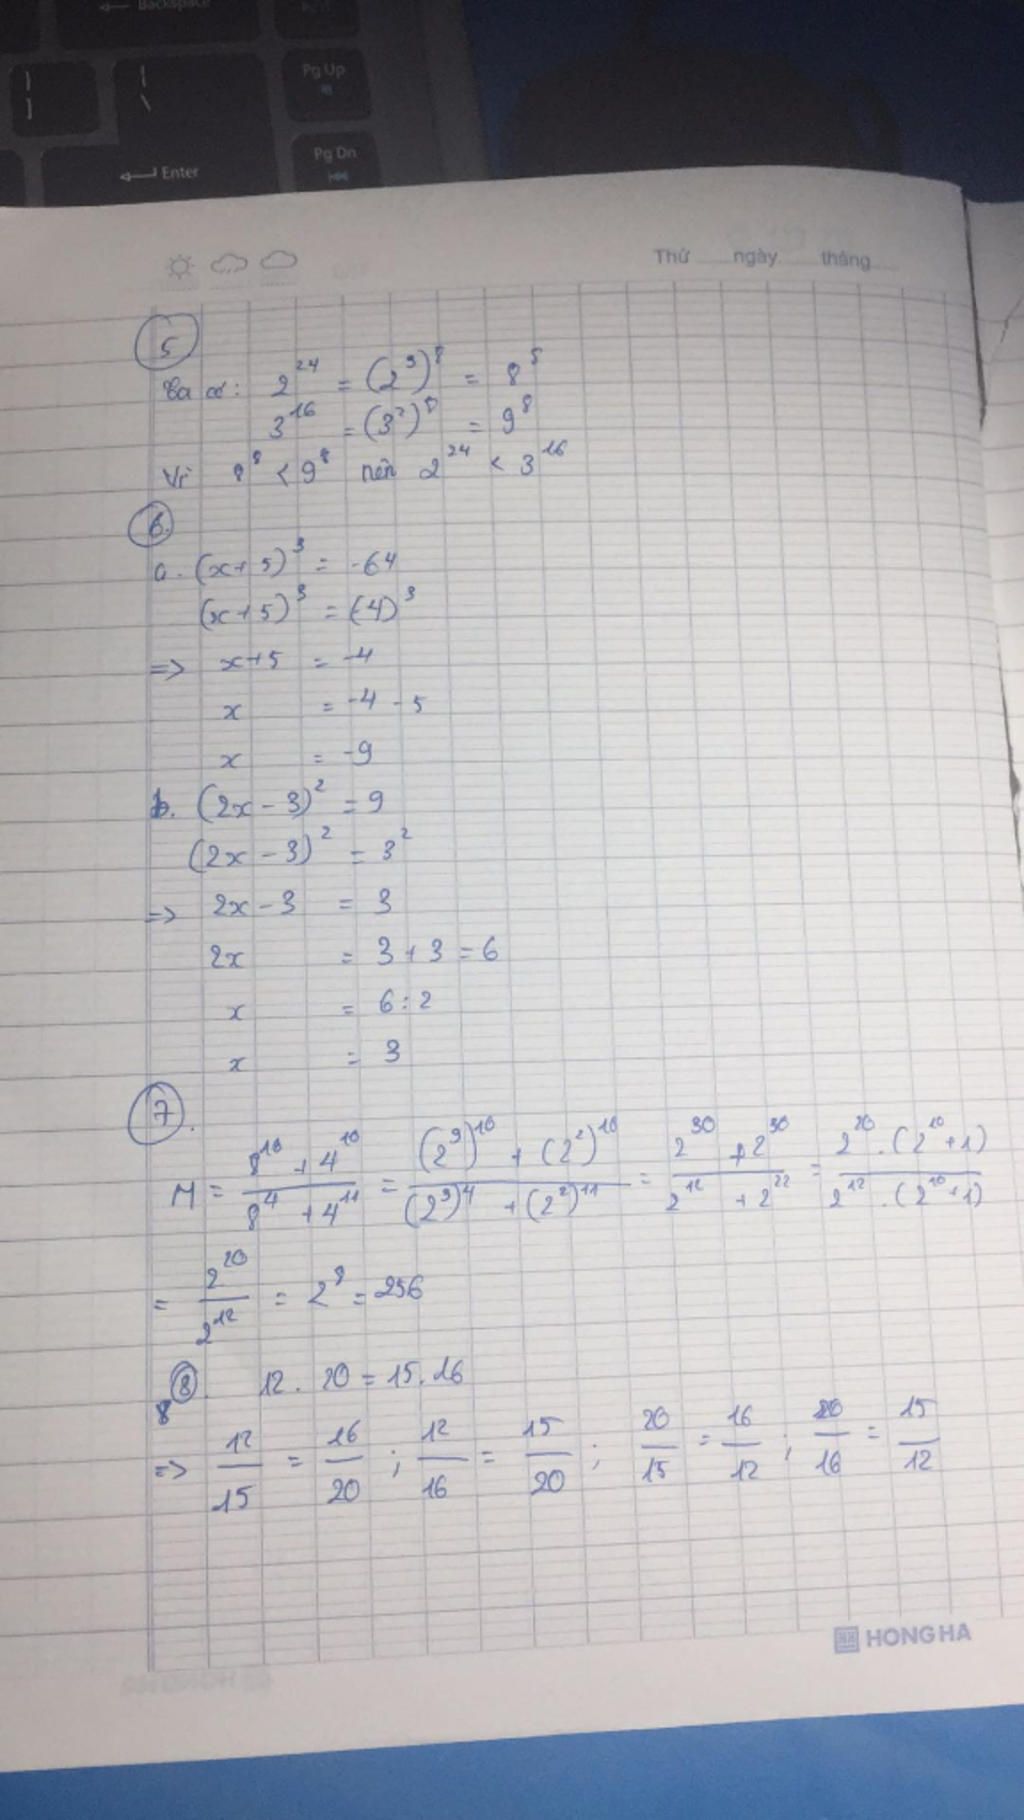 Backspace
Pg Up
}
]
|
\
Pg Dn
Enter
Thứ ngày tháng
5
Ta có: 2^24 = (2^3)^8 = 8^8
3^16 = (3^2)^8 = 9^8
Vì 8^8 < 9^8 nên 2^24 < 3^16
6.
a. (x+5)^3 = -64
(x+5)^3 = (-4)^3
=> x+5 = -4
x = -4 - 5
x = -9
b. (2x - 3)^2 = 9
(2x - 3)^2 = 3^2
=> 2x - 3 = 3
2x = 3 + 3 = 6
x = 6 : 2
x = 3
7.
M = (8^10 + 4^10)/(8^4 + 4^11) = ((2^3)^10 + (2^2)^10)/((2^3)^4 + (2^2)^11) = (2^30 + 2^30)/(2^12 + 2^22) = (2^20 . (2^10 + 1))/(2^12 . (2^10 + 1))
= 2^20/2^12 = 2^8 = 256
8. 12 . 20 = 15 . 16
=> 12/15 = 16/20 ; 12/16 = 15/20 ; 20/15 = 16/12 ; 20/16 = 15/12
HONG HA